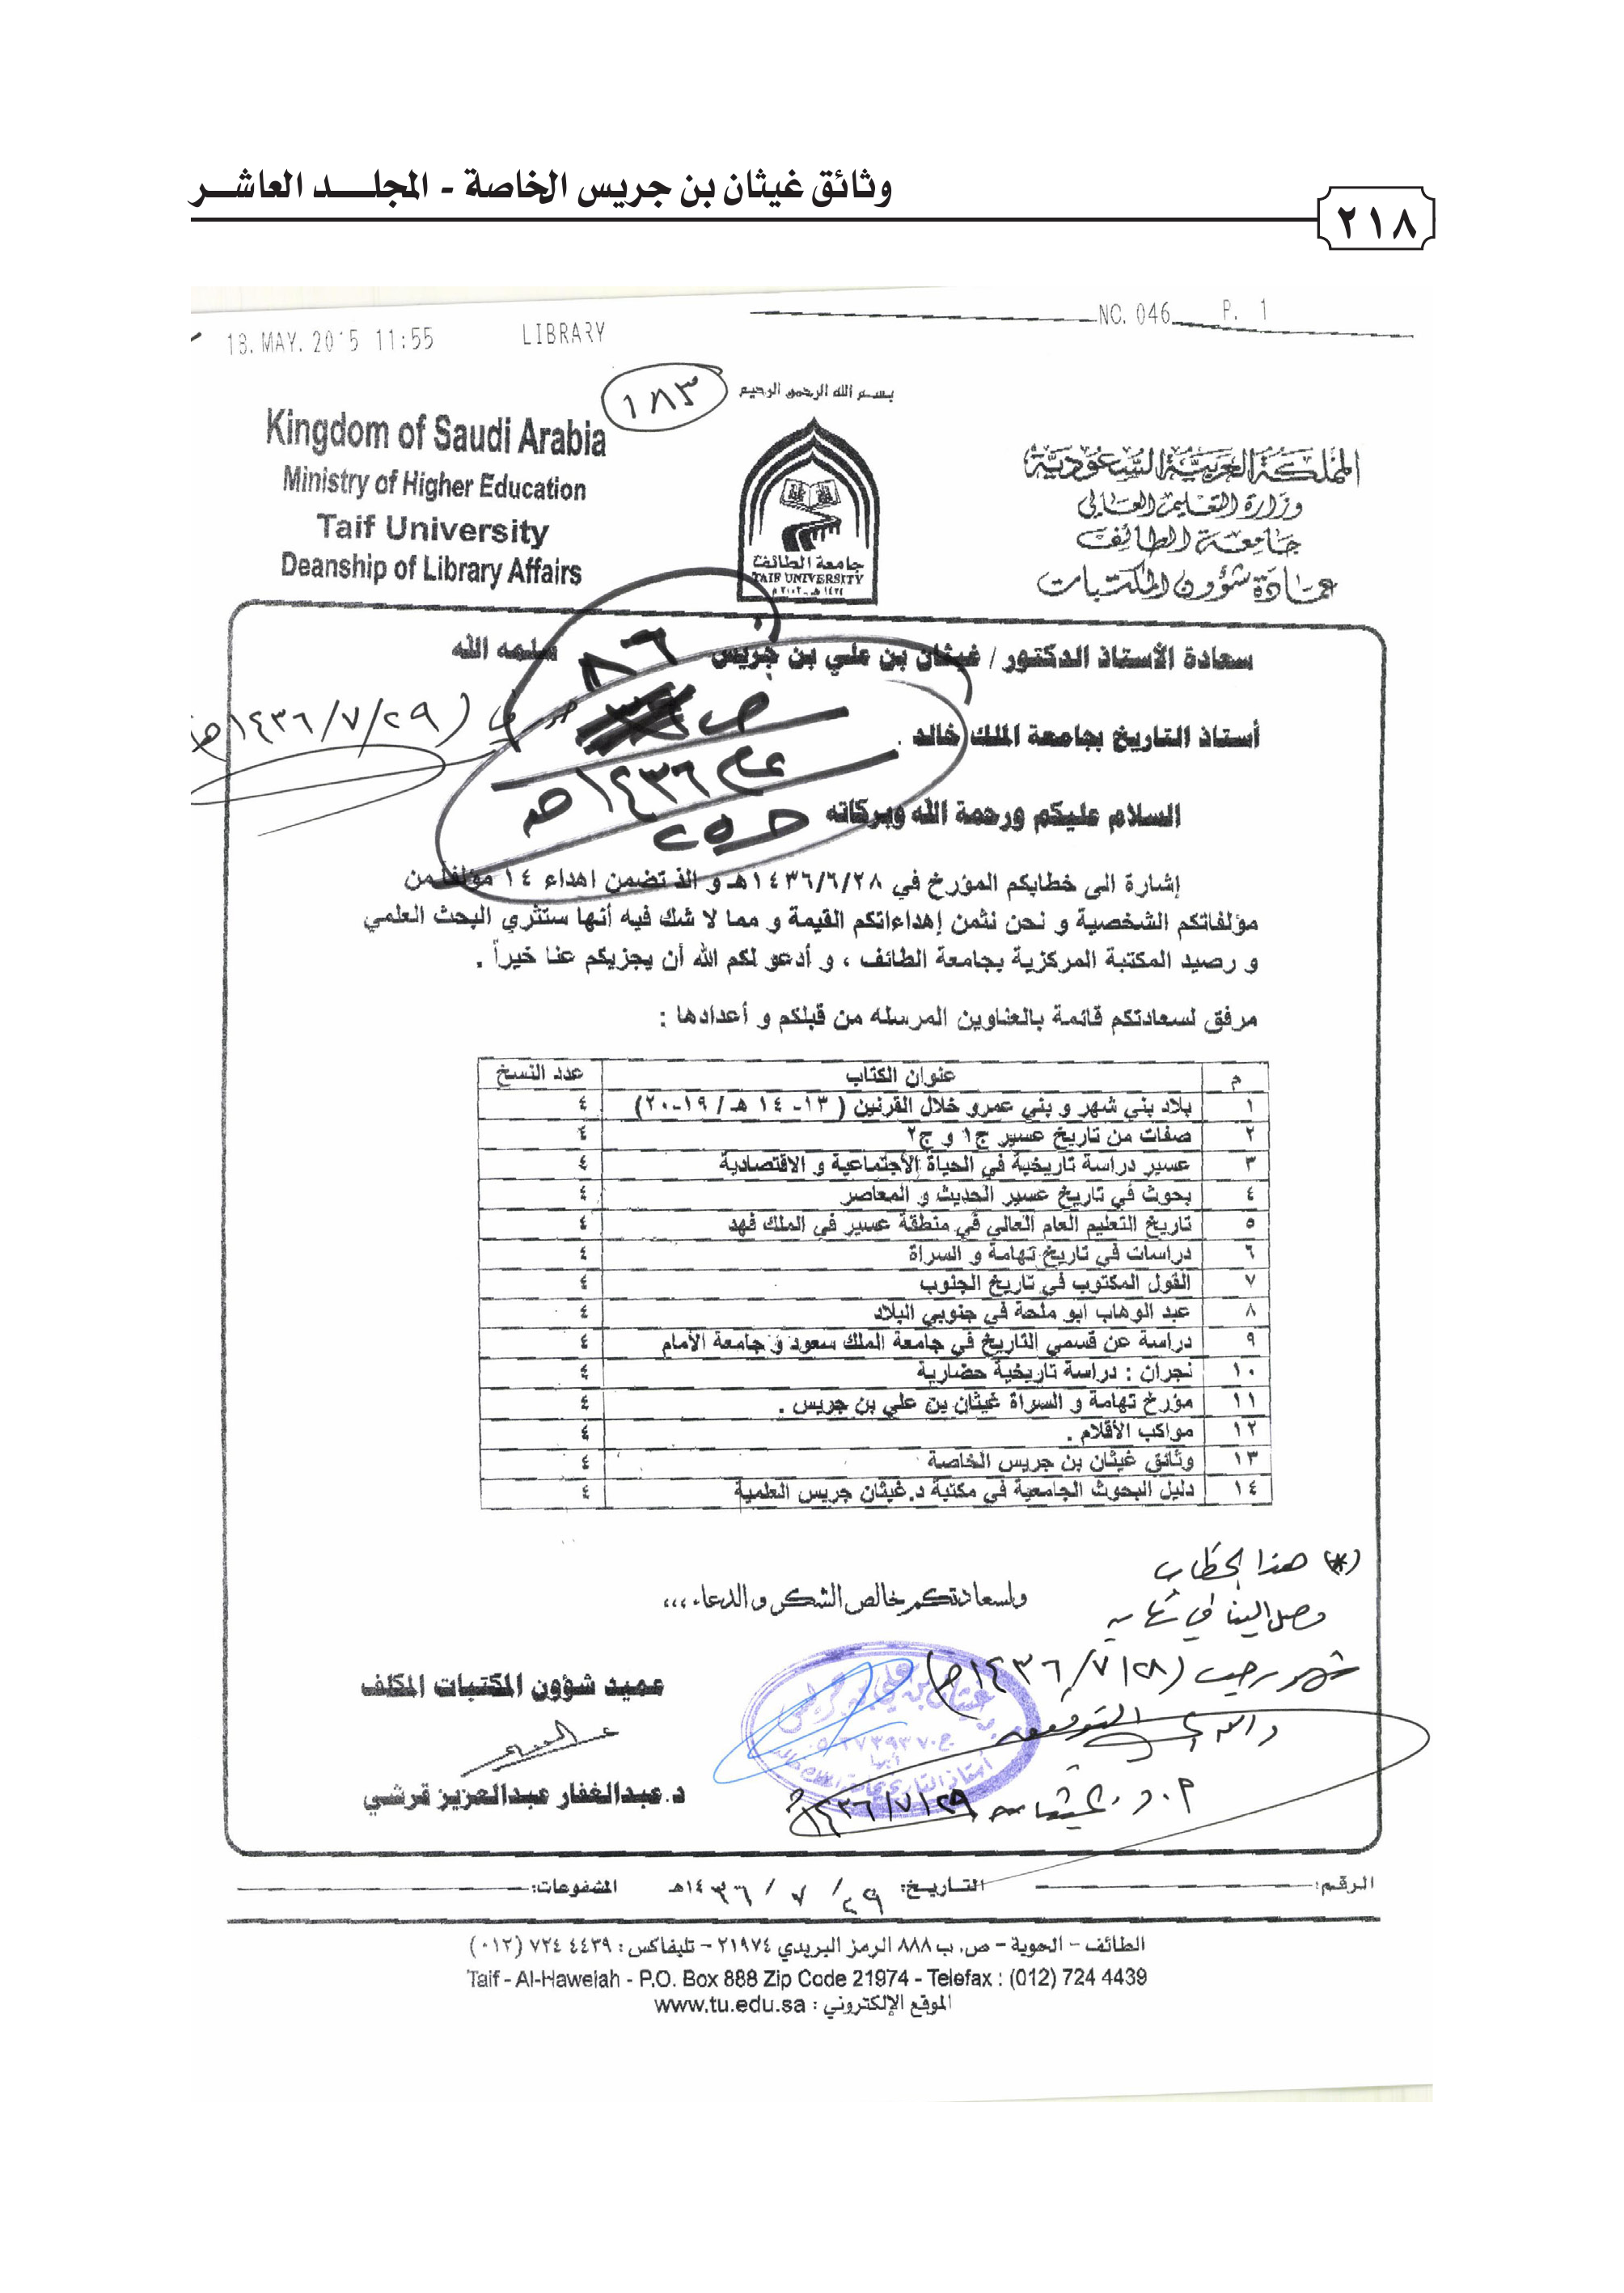 وثائق غيثان بن جريس الخاصة - المجلـــد العاشـــر
٢١٨
18. MAY. 2015 11:55 LIBRARY NO. 046 P. 1
١٨٣
بسم الله الرحمن الرحيم
Kingdom of Saudi Arabia
Ministry of Higher Education
Taif University
Deanship of Library Affairs
جامعة الطائف
TAIF UNIVERSITY
المملكة العربية السعودية
وزارة التعليم العالي
جامعة الطائف
عمادة شؤون المكتبات
سعادة الأستاذ الدكتور / غيثان بن علي بن جريس سلمه الله
٨٦
أستاذ التاريخ بجامعة الملك خالد .
ص
(١٤٣٦/٧/٢٩هـ)
عام ١٤٣٦هـ
السلام عليكم ورحمة الله وبركاته
إشارة الى خطابكم المؤرخ في ١٤٣٦/٦/٢٨هـ و الذ تضمن اهداء ١٤ مؤلفاً من
مؤلفاتكم الشخصية و نحن نثمن إهداءاتكم القيمة و مما لا شك فيه أنها ستثري البحث العلمي
و رصيد المكتبة المركزية بجامعة الطائف ، و أدعو لكم الله أن يجزيكم عنا خيراً .
مرفق لسعادتكم قائمة بالعناوين المرسله من قبلكم و أعدادها :
م عنوان الكتاب عدد النسخ
١ بلاد بني شهر و بني عمرو خلال القرنين ( ١٣- ١٤ هـ/ ١٩-٢٠) ٤
٢ صفات من تاريخ عسير ج١ و ج٢ ٤
٣ عسير دراسة تاريخية في الحياة الأجتماعية و الاقتصادية ٤
٤ بحوث في تاريخ عسير الحديث و المعاصر ٤
٥ تاريخ التعليم العام العالي في منطقة عسير في الملك فهد ٤
٦ دراسات في تاريخ تهامة و السراة ٤
٧ القول المكتوب في تاريخ الجنوب ٤
٨ عبد الوهاب ابو ملحة في جنوبي البلاد ٤
٩ دراسة عن قسمي التاريخ في جامعة الملك سعود و جامعة الأمام ٤
١٠ نجران : دراسة تاريخية حضارية ٤
١١ مؤرخ تهامة و السراة غيثان بن علي بن جريس . ٤
١٢ مواكب الأقلام . ٤
١٣ وثائق غيثان بن جريس الخاصة ٤
١٤ دليل البحوث الجامعية في مكتبة د.غيثان جريس العلمية ٤
(*) هذا الخطاب
وصل الينا في نهاية
شهر رجب (١٤٣٦/٧/٢٨هـ)
والله
ولسعادتكم خالص الشكر والدعاء ,,,
عميد شؤون المكتبات المكلف
د.عبدالغفار عبدالعزيز قرشي
أ.د. غيثان ١٤٣٦/٧/٢٩
الرقم: التاريخ: ٢٩ / ٧ / ١٤٣٦هـ المشفوعات:
الطائف - الحوية - ص.ب ٨٨٨ الرمز البريدي ٢١٩٧٤ - تليفاكس : ٤٤٣٩ ٧٢٤ (٠١٢)
Taif - Al-Haweiah - P.O. Box 888 Zip Code 21974 - Telefax : (012) 724 4439
الموقع الإلكتروني : www.tu.edu.sa